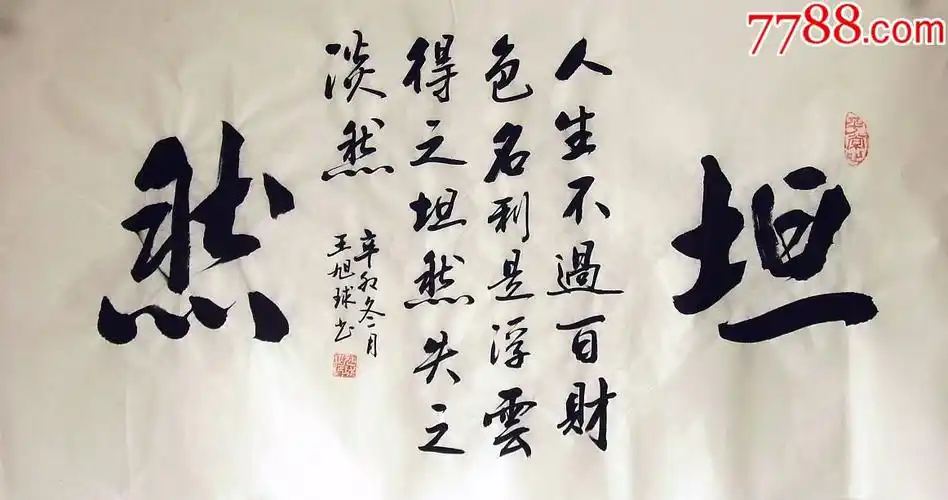 7788.com
坦
人生不過百財
色名利是浮雲
得之坦然失之
淡然
辛卯冬月
王旭球书
然